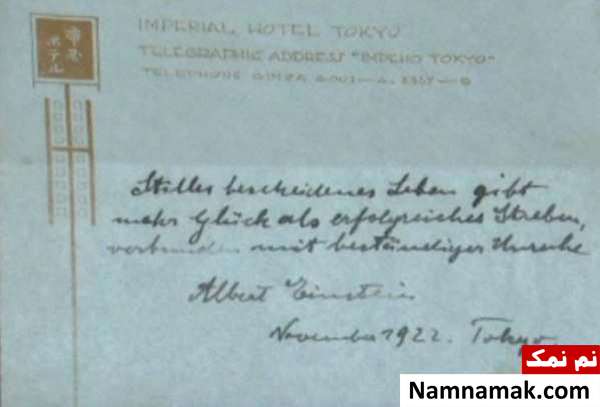 帝国
ホテル
IMPERIAL HOTEL TOKYO
TELEGRAPHIC ADDRESS "IMPEHO TOKYO"
TELEPHONE GINZA
Stilles bescheidenes Leben gibt
mehr Glück als erfolgreiches Streben,
verbunden mit beständiger Unruhe
Albert Einstein
November 1922. Tokyo
نم نمک
Namnamak.com